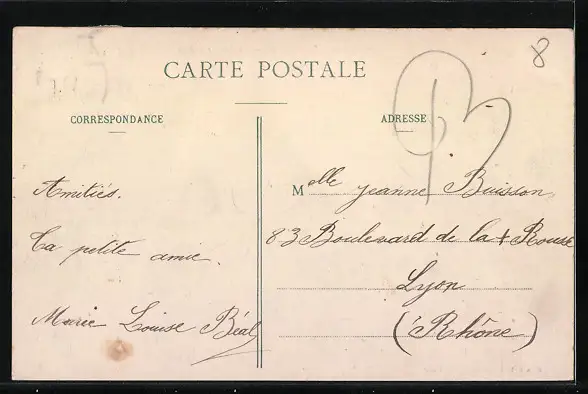 CARTE POSTALE
CORRESPONDANCE
ADRESSE
8
Amitiés.
Ta petite amie.
Marie Louise Béal
Melle Jeanne Buisson
83 Boulevard de la + Rousse
Lyon
(Rhône)